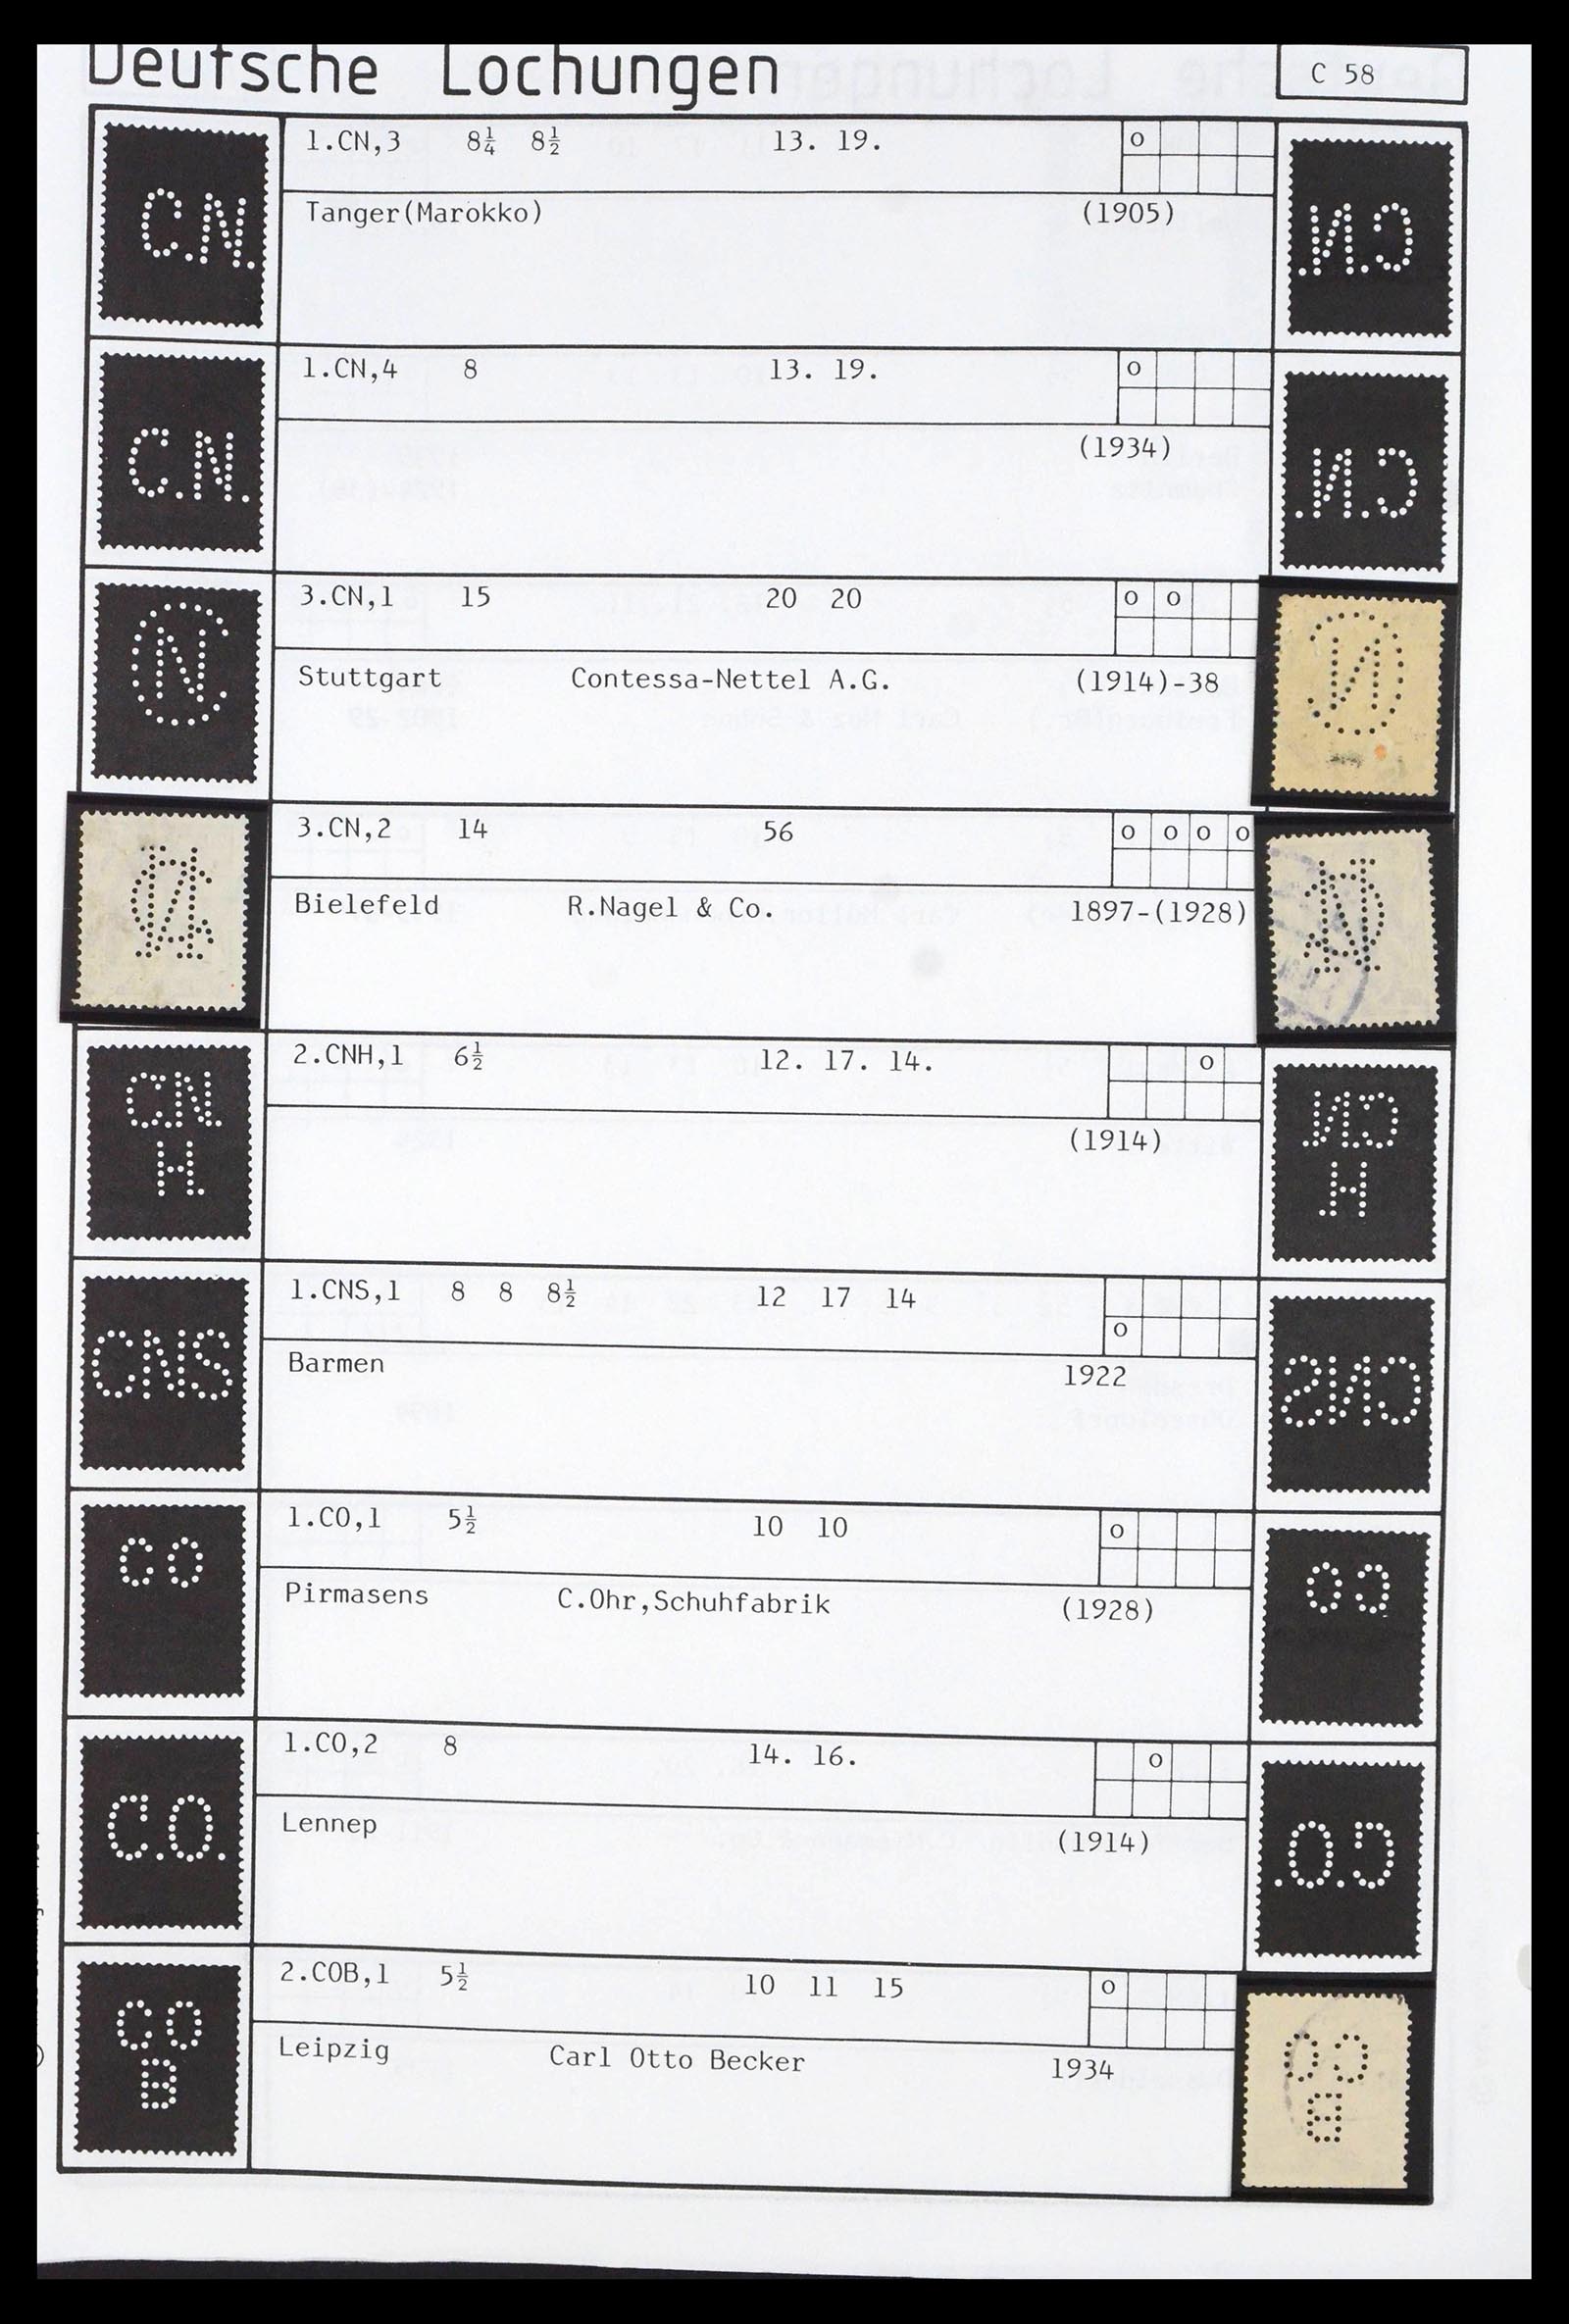 Deutsche Lochungen
C 58
C.N.
1.CN,3 8¼ 8½ 13. 19. o
Tanger(Marokko) (1905)
C.N.
1.CN,4 8 13. 19. o
(1934)
CN
3.CN,1 15 20 20 o o
Stuttgart Contessa-Nettel A.G. (1914)-38
3.CN,2 14 56 o o o o
Bielefeld R.Nagel & Co. 1897-(1928)
C.N.
H.
2.CNH,1 6½ 12. 17. 14. o
(1914)
CNS
1.CNS,1 8 8 8½ 12 17 14
o
Barmen 1922
CO
1.CO,1 5½ 10 10 o
Pirmasens C.Ohr,Schuhfabrik (1928)
C.O.
1.CO,2 8 14. 16. o
Lennep (1914)
CO
B
2.COB,1 5½ 10 11 15 o
Leipzig Carl Otto Becker 1934